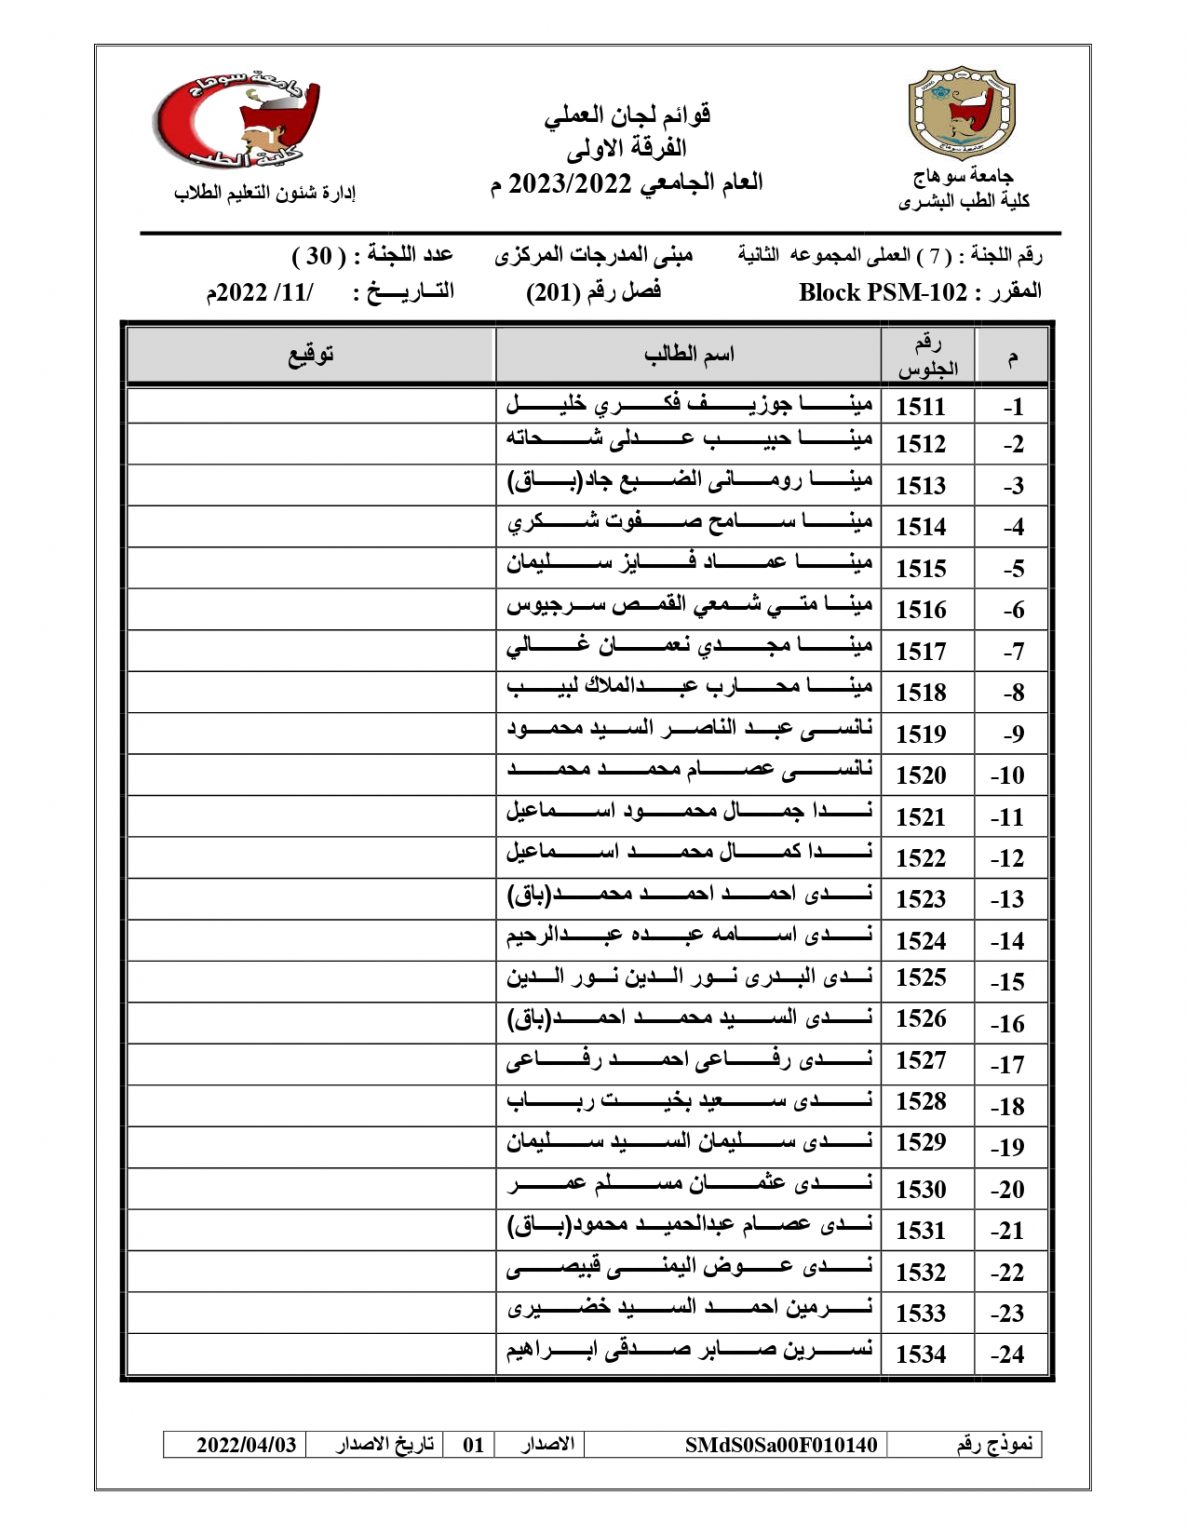 جامعة سوهاج
كلية الطب البشرى
قوائم لجان العملي
الفرقة الاولى
العام الجامعي 2023/2022 م
جامعة سوهاج
كلية الطب
إدارة شئون التعليم الطلاب
رقم اللجنة : ( 7 ) العملى المجموعه الثانية مبنى المدرجات المركزى عدد اللجنة : ( 30 )
المقرر : Block PSM-102 فصل رقم (201) التــاريــخ : /11/ 2022م
م رقم الجلوس اسم الطالب توقيع
1- 1511 مينا جوزيف فكري خليل
2- 1512 مينا حبيب عدلى شحاته
3- 1513 مينا رومانى الضبع جاد(باق)
4- 1514 مينا سامح صفوت شكري
5- 1515 مينا عماد فايز سليمان
6- 1516 مينا متي شمعي القمص سرجيوس
7- 1517 مينا مجدي نعمان غالي
8- 1518 مينا محارب عبدالملاك لبيب
9- 1519 نانسى عبد الناصر السيد محمود
10- 1520 نانسى عصام محمد محمد
11- 1521 ندا جمال محمود اسماعيل
12- 1522 ندا كمال محمد اسماعيل
13- 1523 ندى احمد احمد محمد(باق)
14- 1524 ندى اسامه عبده عبدالرحيم
15- 1525 ندى البدرى نور الدين نور الدين
16- 1526 ندى السيد محمد احمد(باق)
17- 1527 ندى رفاعى احمد رفاعى
18- 1528 ندى سعيد بخيت رباب
19- 1529 ندى سليمان السيد سليمان
20- 1530 ندى عثمان مسلم عمر
21- 1531 ندى عصام عبدالحميد محمود(باق)
22- 1532 ندى عوض اليمنى قبيصى
23- 1533 نرمين احمد السيد خضيرى
24- 1534 نسرين صابر صدقى ابراهيم
نموذج رقم SMdS0Sa00F010140 الاصدار 01 تاريخ الاصدار 2022/04/03